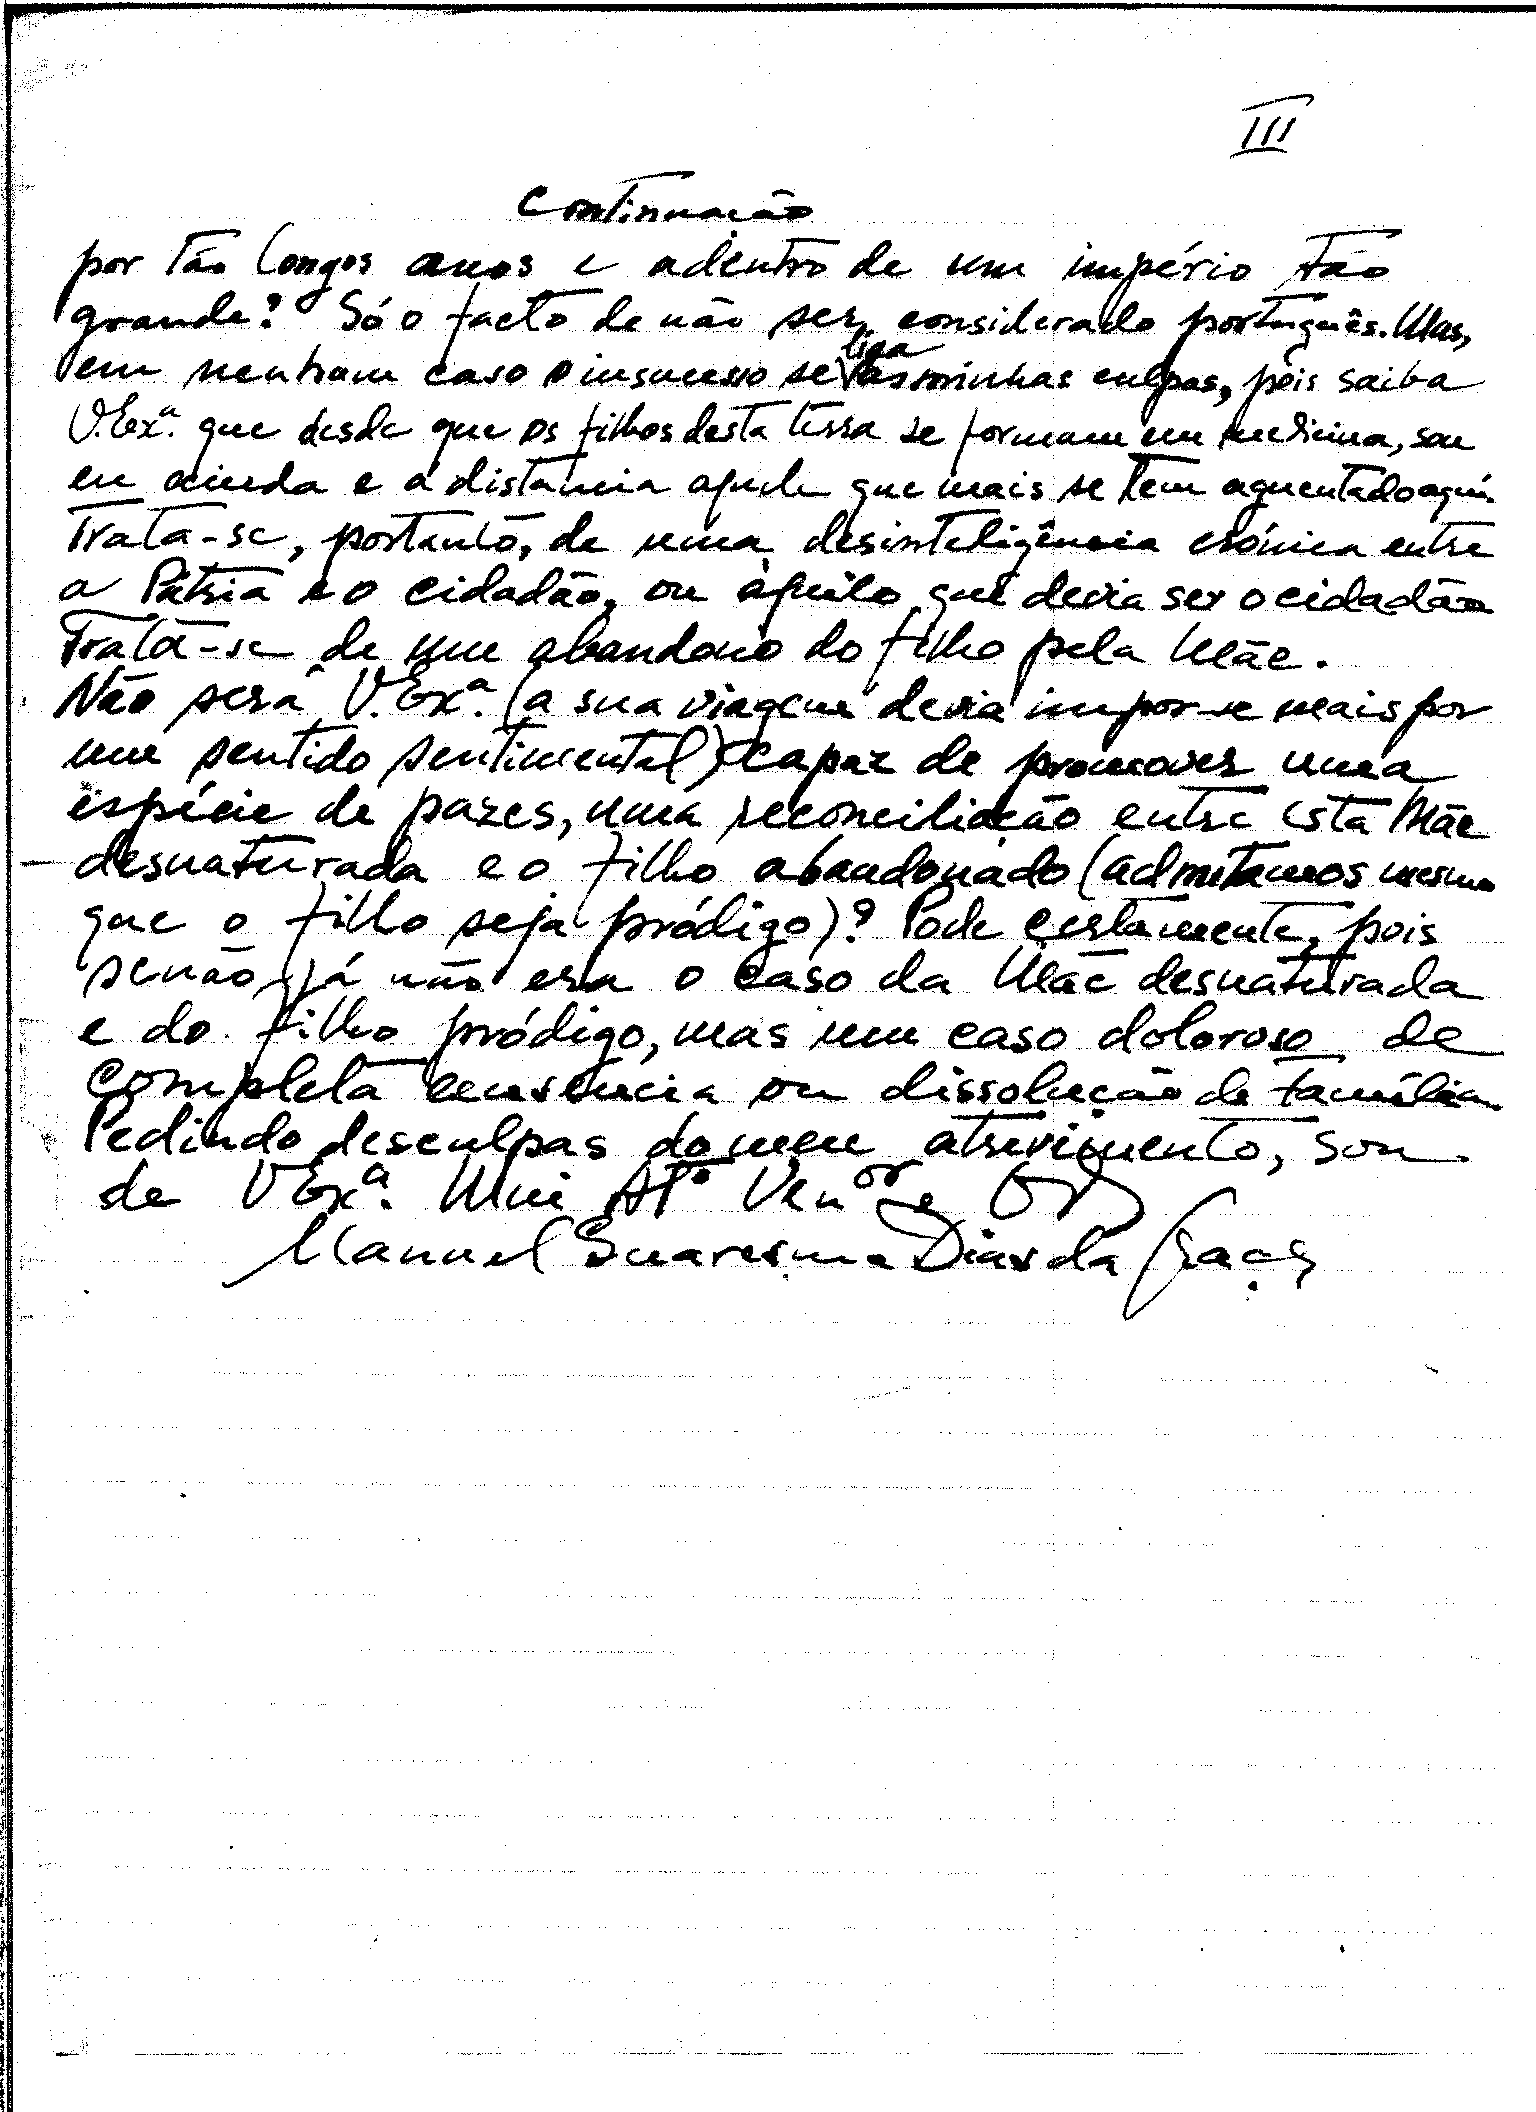 III
Continuação
por tão longos anos e adentro de um império tão
grande? Só o facto de não ser considerado português. Mas,
em nenhum caso o insucesso se liga às minhas culpas, pois saiba
V. Exª. que desde que os filhos desta terra se formam em medicina, sou
eu ainda e a distância aquele que mais se tem aguentado aqui.
Trata-se, portanto, de uma desinteligência crónica entre
a Pátria e o cidadão, ou àquilo que devia ser o cidadão
Trata-se de um abandono do filho pela Mãe.
Não será V. Exª. (a sua viagem devia impor-se mais por
um sentido sentimental) capaz de promover uma
espécie de pazes, uma reconciliação entre esta Mãe
desnaturada e o filho abandonado (admitamos mesmo
que o filho seja pródigo)? Pode certamente, pois
senão já não era o caso da Mãe desnaturada
e do filho pródigo, mas um caso doloroso de
completa ou dissolução de família.
Pedindo desculpas do meu atrevimento, sou
de V Exª. Mui Atº Venºʳ e
Manuel Quaresma Dias da Graça